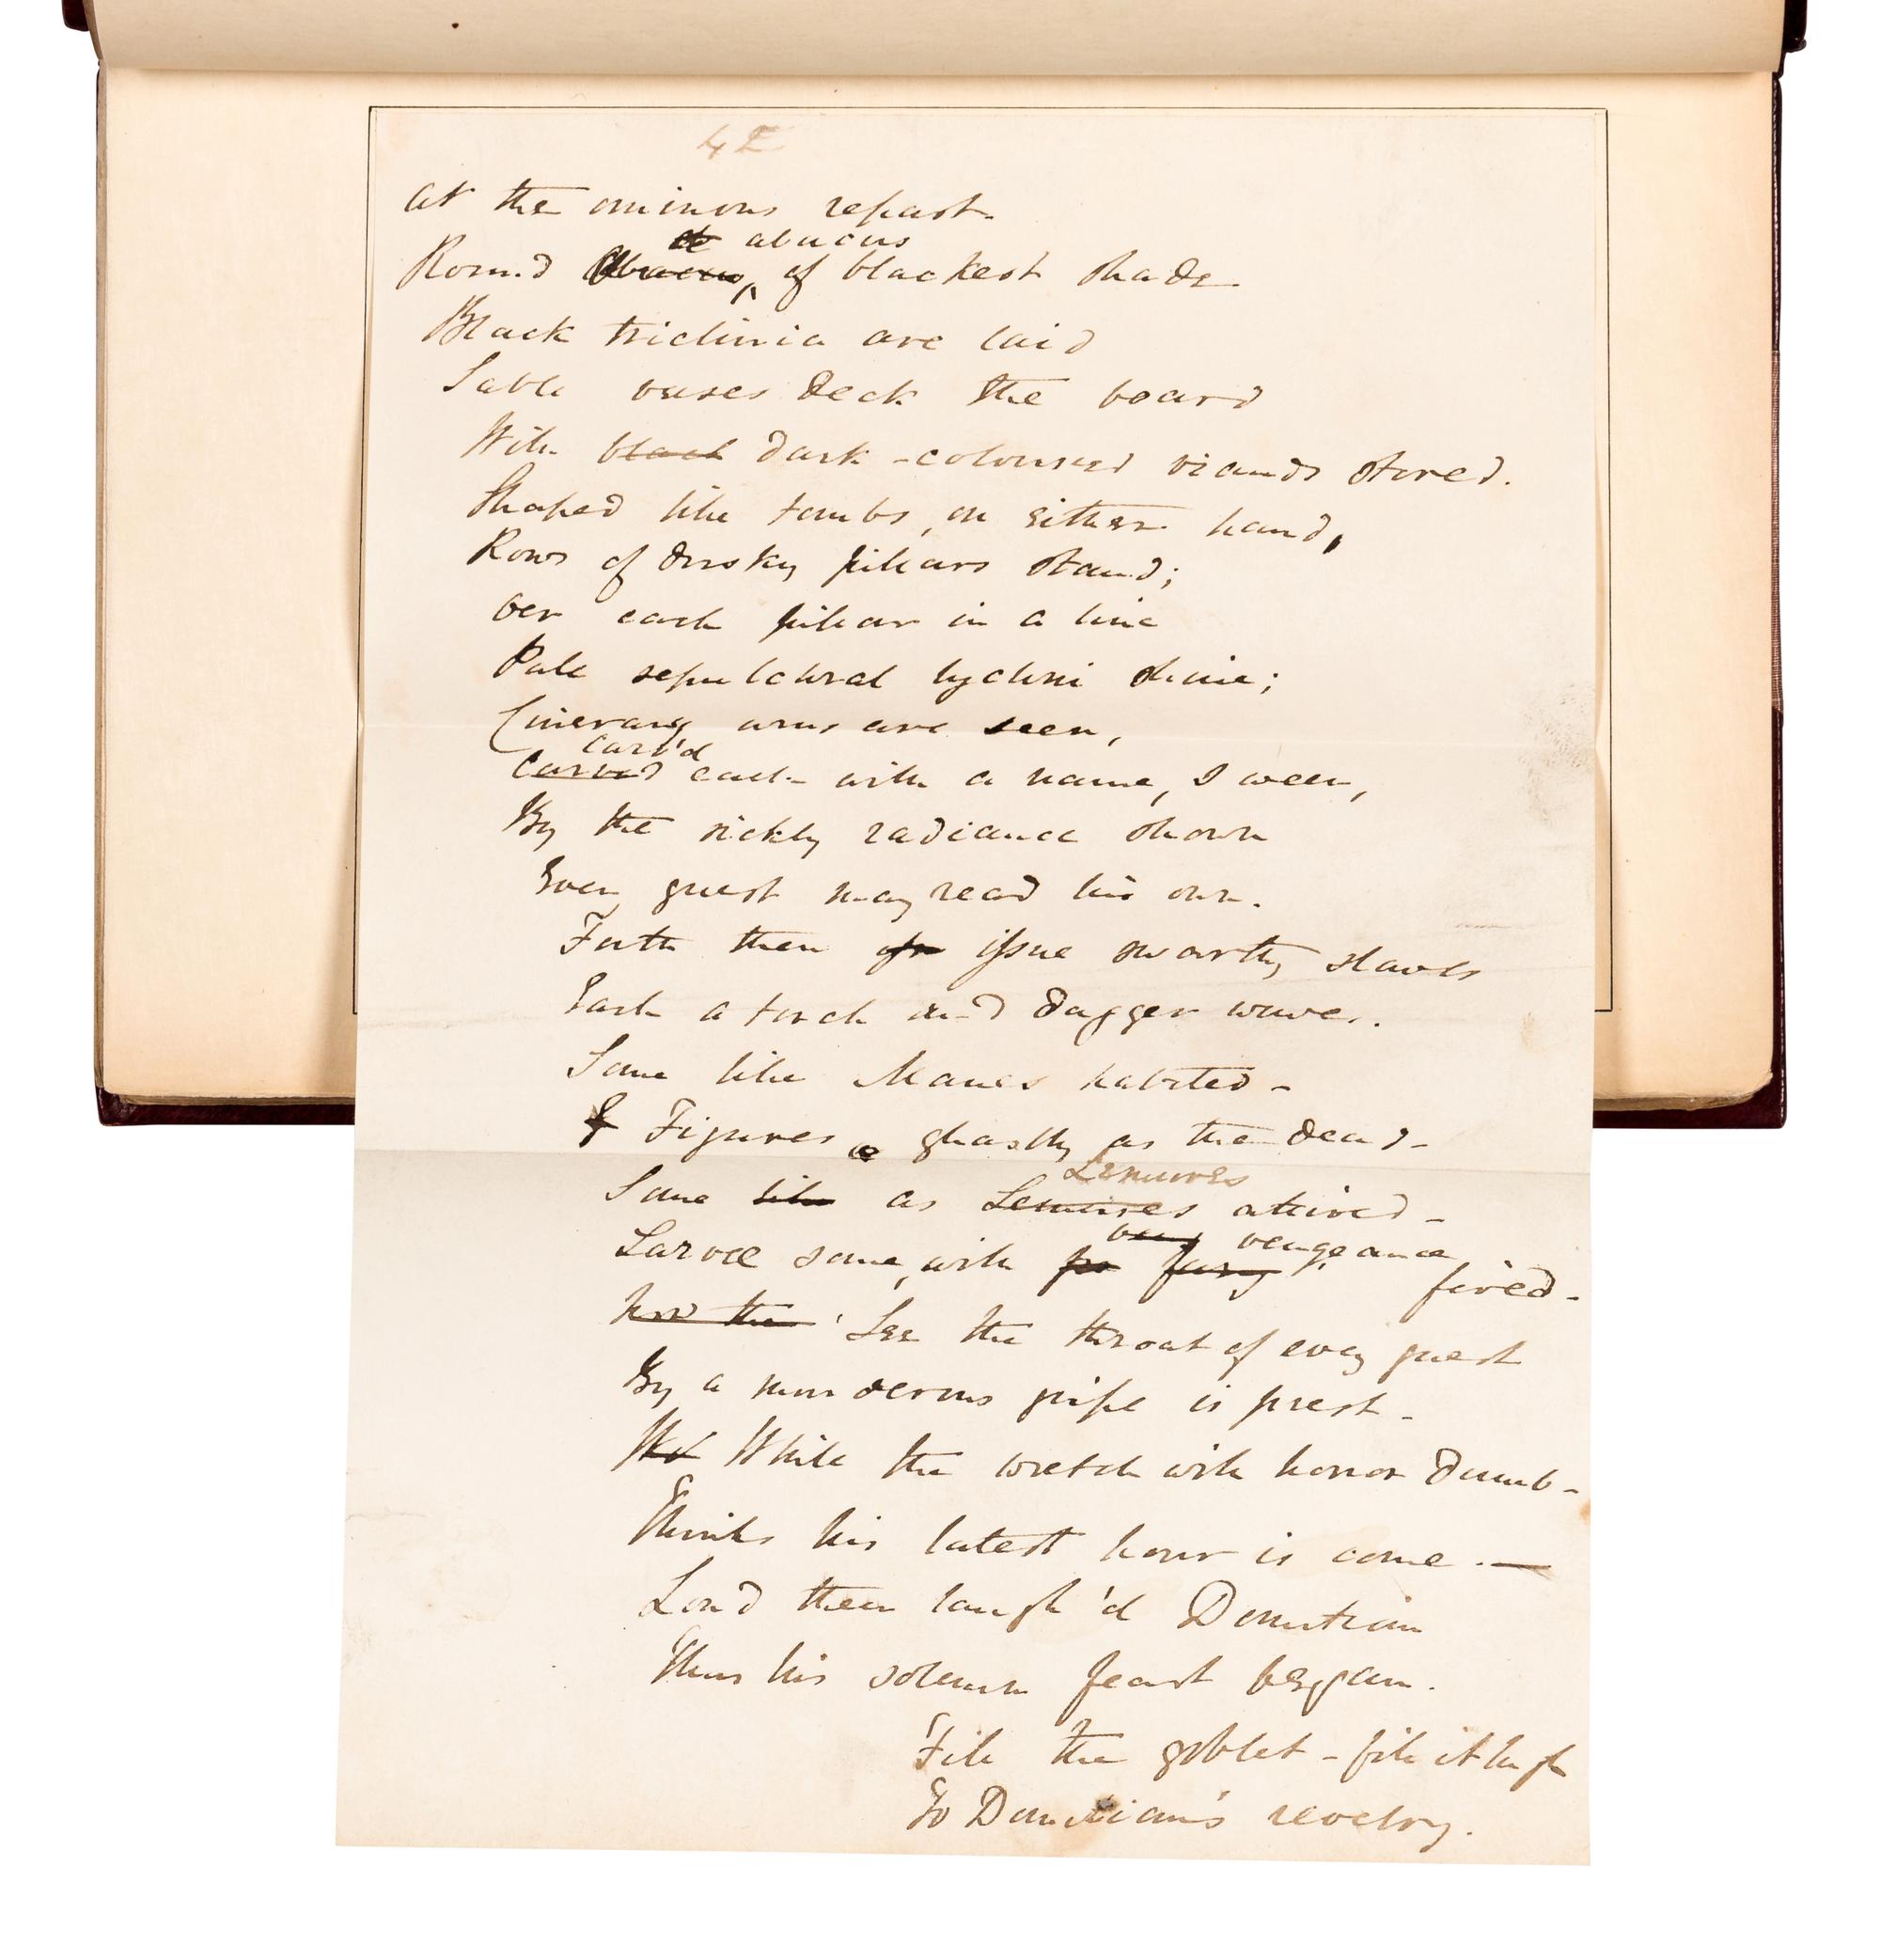 at the ominous repast.
abacus
Round Abacus, of blackest shade
Black triclinia are laid
Sable vases deck the board
With black dark-coloured viands stored.
Shaped like tombs, on either hand,
Rows of dusky pillars stand;
Oer each pillar in a line
Pale sepulchral lychni shine;
Cinerary urns are seen,
Carv'd
Carved each with a name, I ween,
By the sickly radiance shown
Every guest may read his own.
Forth then issue swarthy slaves
Each a torch and dagger waves.
Some like Manes habited-
Figures ghastly as the dead-
Lemures
Some like as Lemures attired-
veng vengeance
Larvae some, with fury fired-
how the See the throat of every guest
By a murderous gripe is prest-
While the wretch with horror dumb-
Thinks his latest hour is come.—
Loud then laugh'd Domitian
Thus his solemn feast began.
Fill the goblet - fill it high
To Domitian's revelry.